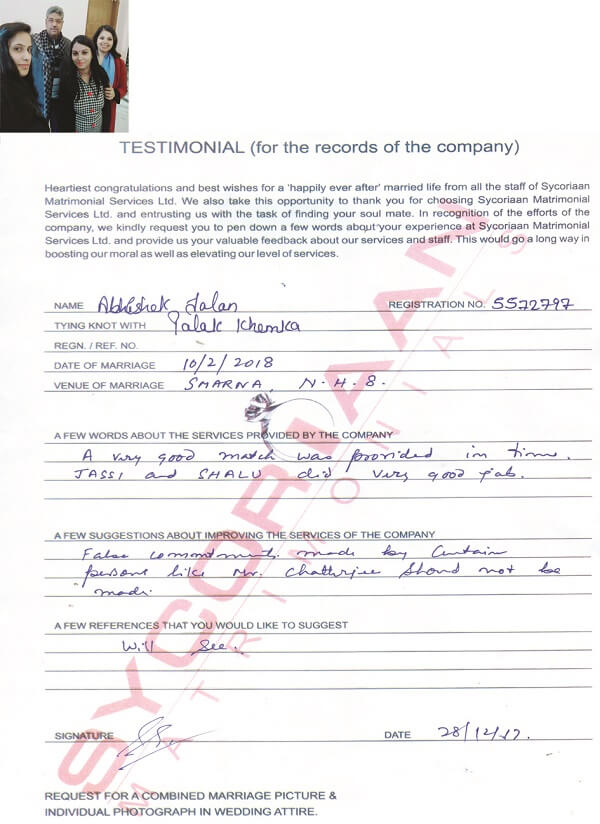 TESTIMONIAL (for the records of the company)
Heartiest congratulations and best wishes for a 'happily ever after' married life from all the staff of Sycoriaan
Matrimonial Services Ltd. We also take this opportunity to thank you for choosing Sycoriaan Matrimonial
Services Ltd. and entrusting us with the task of finding your soul mate. In recognition of the efforts of the
company, we kindly request you to pen down a few words about your experience at Sycoriaan Matrimonial
Services Ltd. and provide us your valuable feedback about our services and staff. This would go a long way in
boosting our moral as well as elevating our level of services.
NAME Abhishek Jalan REGISTRATION NO. 5572797
TYING KNOT WITH Palak Khemka
REGN. / REF. NO.
DATE OF MARRIAGE 10/2/2018
VENUE OF MARRIAGE SMARNA, N.H.8.
A FEW WORDS ABOUT THE SERVICES PROVIDED BY THE COMPANY
A very good match was provided in time.
JASSI and SHALU did very good job.
A FEW SUGGESTIONS ABOUT IMPROVING THE SERVICES OF THE COMPANY
False commitments made by certain
persons like Mr. Chatterjee should not be
made.
A FEW REFERENCES THAT YOU WOULD LIKE TO SUGGEST
Will See.
SIGNATURE DATE 28/12/17.
REQUEST FOR A COMBINED MARRIAGE PICTURE &
INDIVIDUAL PHOTOGRAPH IN WEDDING ATTIRE.
SYCORIAAN
MATRIMONIALS